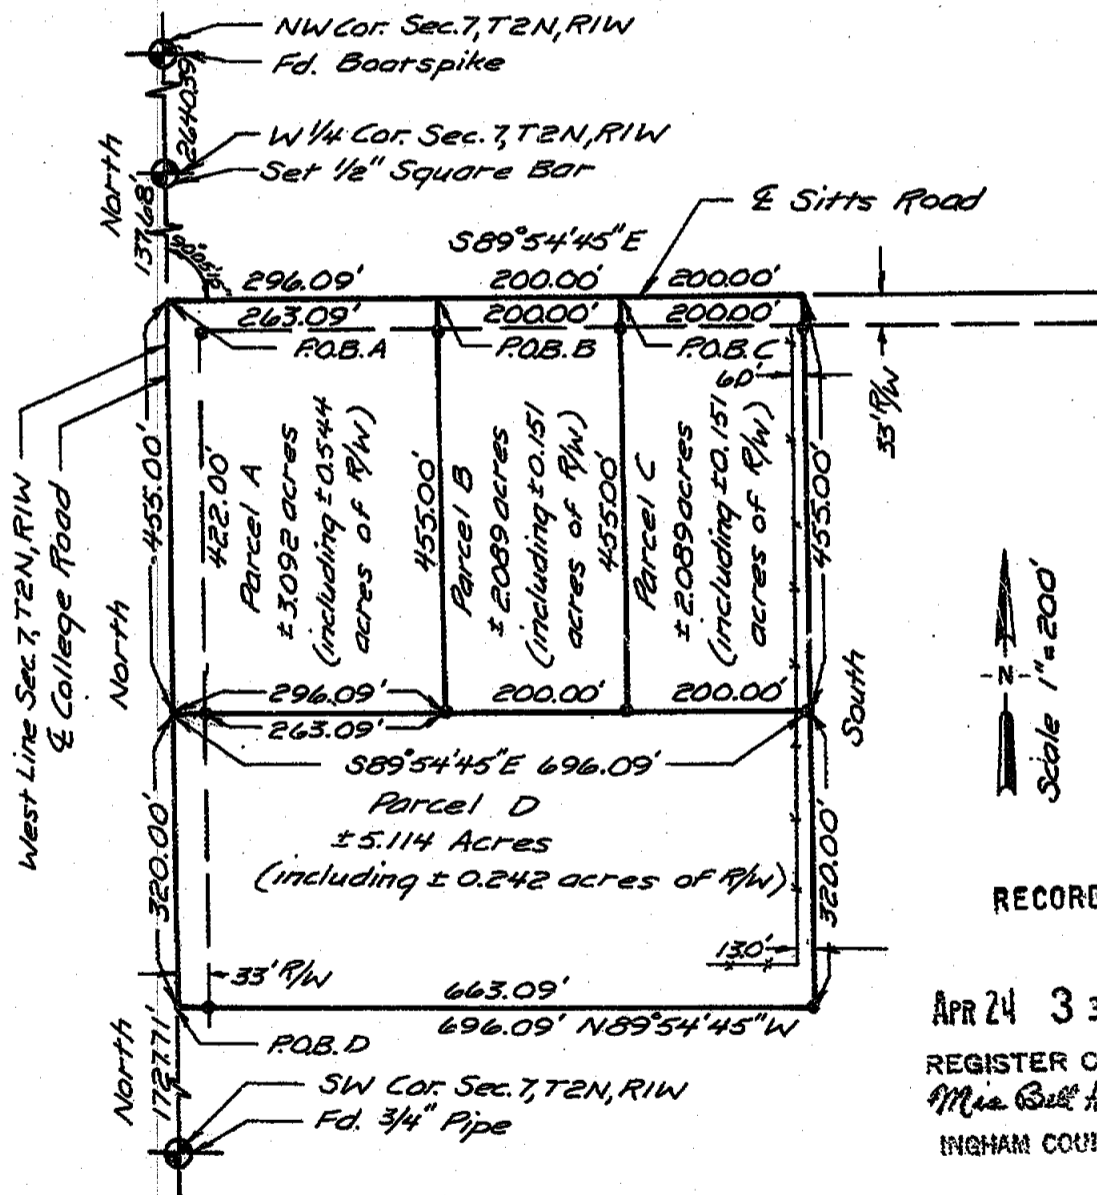 NW Cor. Sec. 7, T2N, R1W
Fd. Boatspike
2640.39'
W 1/4 Cor. Sec. 7, T2N, R1W
Set 1/2" Square Bar
North
137.68'
℄ Sitts Road
S89°54'45"E
296.09'
200.00'
200.00'
263.09'
200.00'
200.00'
P.O.B. A
P.O.B. B
P.O.B. C
6.0'
33' R/W
West Line Sec. 7, T2N, R1W
℄ College Road
455.00'
422.00'
Parcel A
±3.092 acres
(including ±0.544
acres of R/W)
455.00'
Parcel B
±2.089 acres
(including ±0.151
acres of R/W)
455.00'
Parcel C
±2.089 acres
(including ±0.151
acres of R/W)
455.00'
North
South
-N-
Scale 1"=200'
296.09'
200.00'
200.00'
263.09'
S89°54'45"E 696.09'
Parcel D
±5.114 Acres
(including ±0.242 acres of R/W)
320.00'
320.00'
13.0'
33' R/W
663.09'
696.09' N89°54'45"W
P.O.B. D
North
1727.71'
SW Cor. Sec. 7, T2N, R1W
Fd. 3/4" Pipe
RECORD
APR 24 3
REGISTER O
INGHAM COU